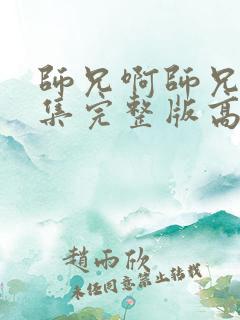 師兄啊師兄
集完整版高
趙雨欣
未经同意禁止转载